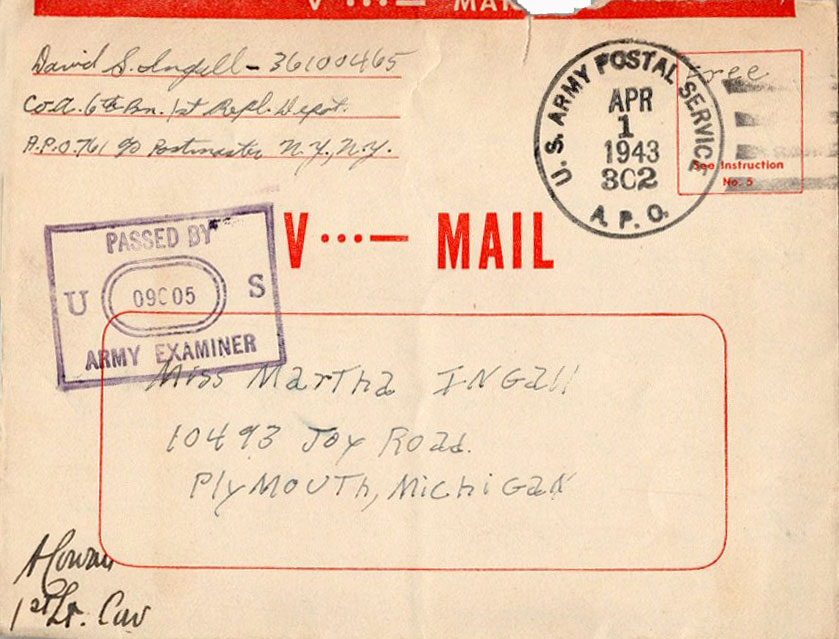 V ···— MAIL
David S. Ingall - 36100465
Co. A. 6th Bn. 1st Repl. Depot.
A.P.O. 761 c/o Postmaster N.Y., N.Y.
free
See Instruction
No. 5
U. S. ARMY POSTAL SERVICE
APR
1
1943
302
A. P. O.
V ···— MAIL
PASSED BY
U S
09005
ARMY EXAMINER
Miss Martha Ingall
10493 Joy Road.
Plymouth, Michigan
1st Lt. Cav